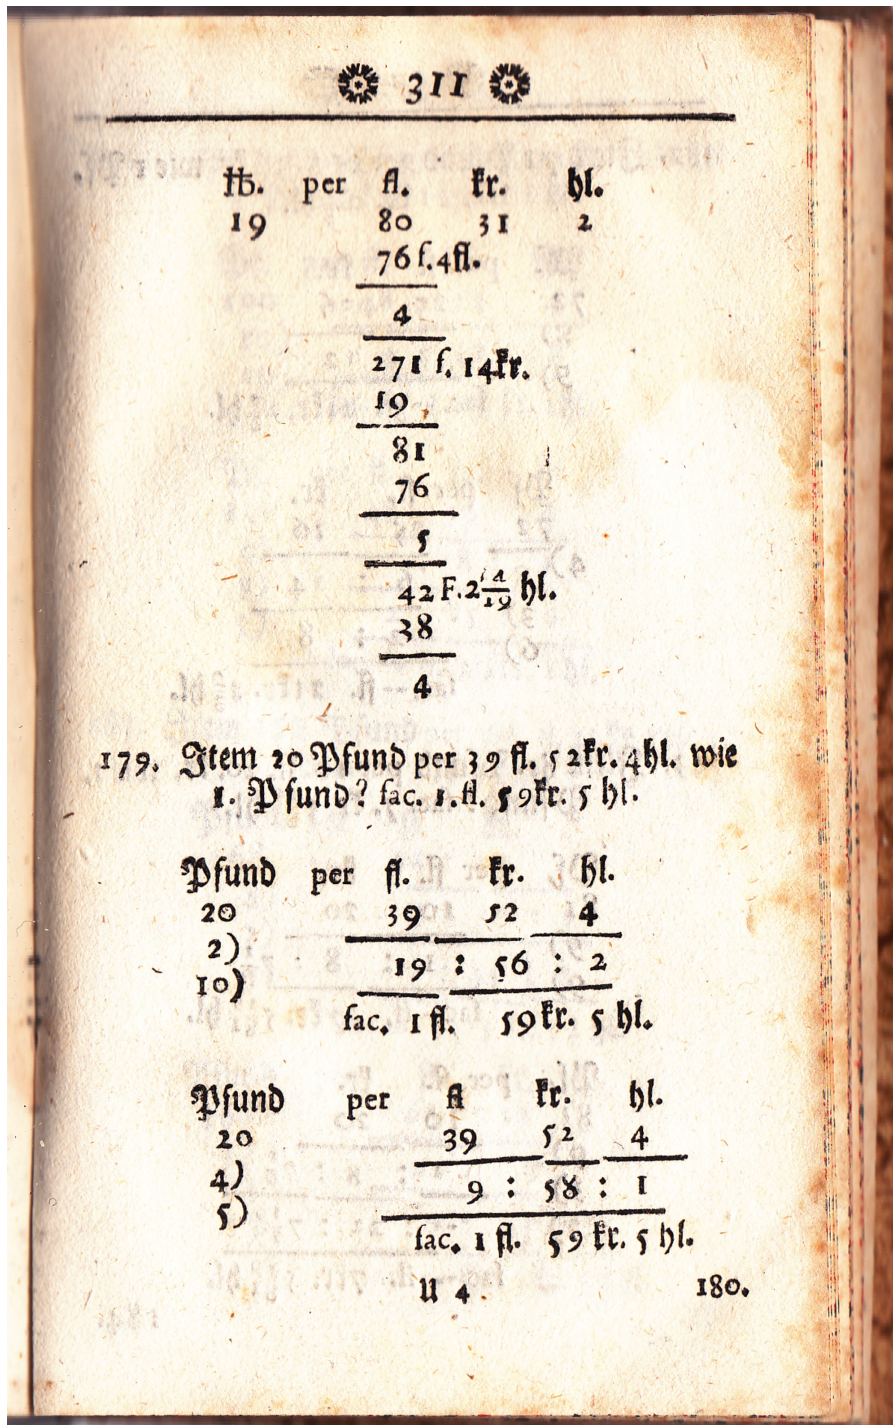 311
℔. per fl. kr. hl.
19 80 31 2
76 f. 4fl.
4
271 f. 14kr.
19
81
76
5
42 F. 2 4/19 hl.
38
4
179. Item 20 Pfund per 39 fl. 52kr. 4hl. wie
1. Pfund? fac. 1. fl. 59kr. 5 hl.
Pfund per fl. kr. hl.
20 39 52 4
2) 19 : 56 : 2
10)
fac. 1 fl. 59kr. 5 hl.
Pfund per fl kr. hl.
20 39 52 4
4) 9 : 58 : 1
5)
fac. 1 fl. 59 kr. 5 hl.
U 4 180.